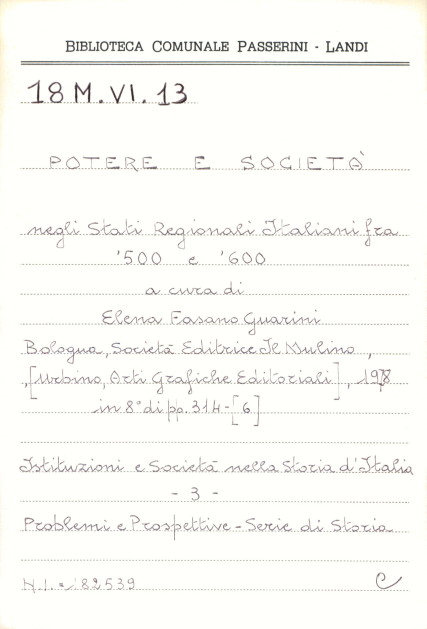 BIBLIOTECA COMUNALE PASSERINI - LANDI
18 M. VI. 13
POTERE E SOCIETÀ
negli Stati Regionali Italiani fra
'500 e '600
a cura di
Elena Fasano Guarini
Bologna, Società Editrice Il Mulino,
,[Urbino, Arti Grafiche Editoriali], 1978
in 8° di pp. 314-[6]
Istituzioni e Società nella Storia d'Italia
- 3 -
Problemi e Prospettive - Serie di Storia
N.I. = 182539